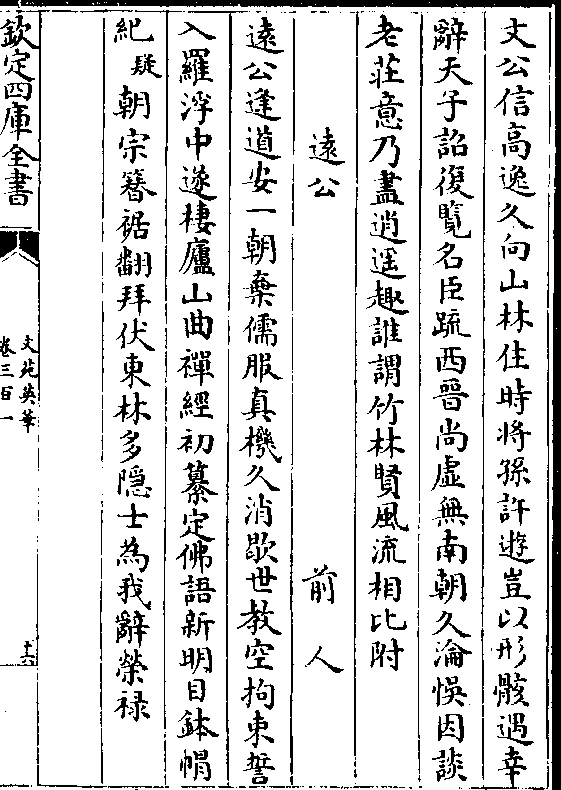 文公信高逸久向山林住時將孫許遊豈以形骸遇幸
辭天子詔復覽名臣疏西晉尚虛無南朝久淪悞因談
老莊意乃盡逍遥趣誰謂竹林賢風流相比附
遠公 前人
遠公逢道安一朝棄儒服真機久消歇世教空拘束誓
入羅浮中遂棲廬山曲禪經初纂定佛語新明目鉢帽
紀疑朝宗簪裾翻拜伏東林多隠士為我辭榮禄
欽定四庫全書
文苑英華
卷三百一
十六